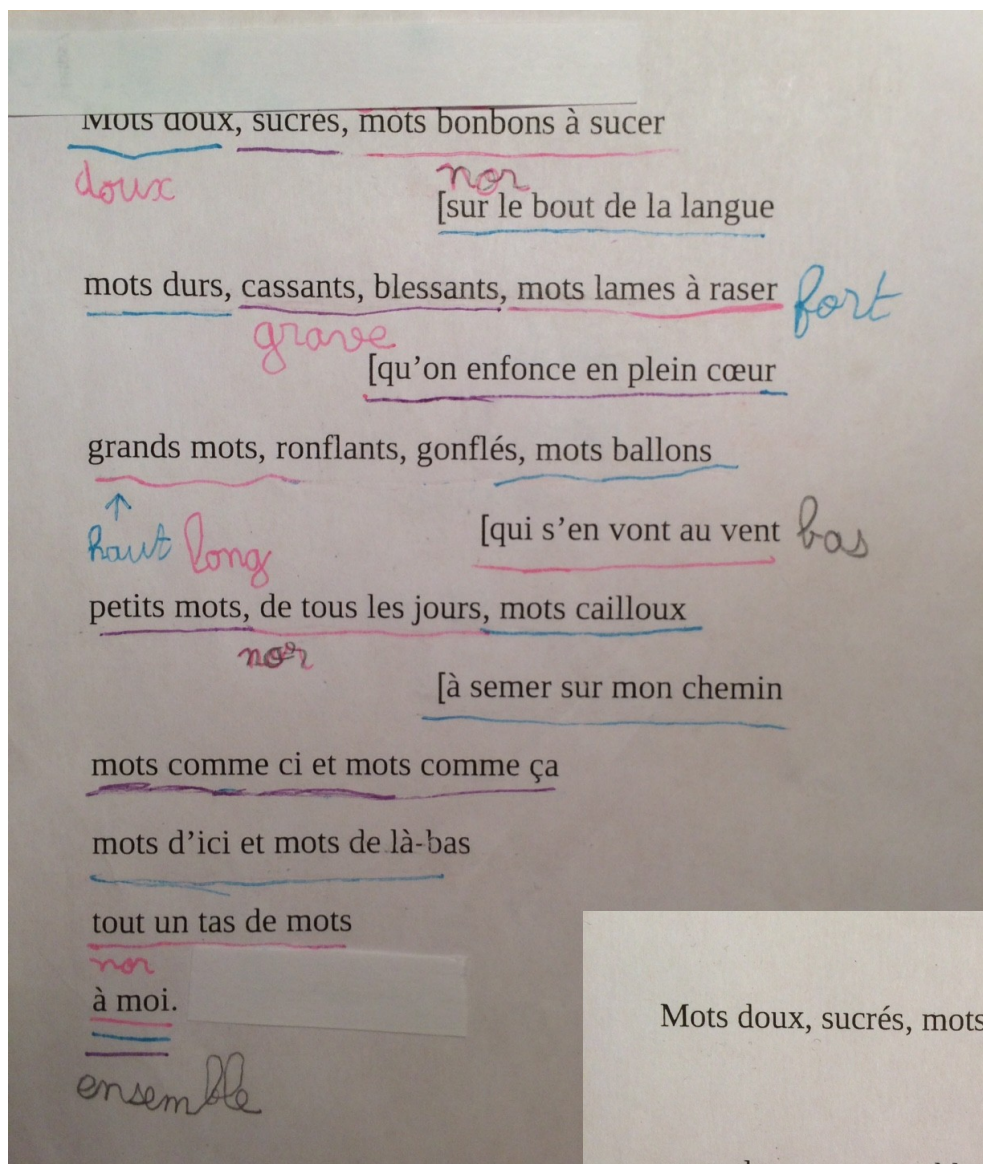 Mots doux, sucrés, mots bonbons à sucer
doux
nor
[sur le bout de la langue
mots durs, cassants, blessants, mots lames à raser fort
grave
[qu'on enfonce en plein cœur
grands mots, ronflants, gonflés, mots ballons
[qui s'en vont au vent bas
↑
haut long
petits mots, de tous les jours, mots cailloux
nor
[à semer sur mon chemin
mots comme ci et mots comme ça
mots d'ici et mots de là-bas
tout un tas de mots
nor
à moi.
ensemble
Mots doux, sucrés, mots